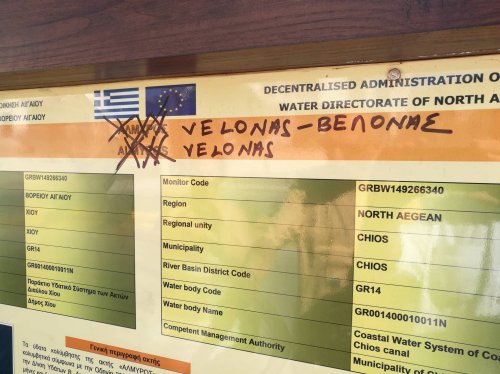 ΟΙΚΗΣΗ ΑΙΓΑΙΟΥ
ΒΟΡΕΙΟΥ ΑΙΓΑΙΟΥ
DECENTRALISED ADMINISTRATION O
WATER DIRECTORATE OF NORTH A
ΑΛΜΥΡΟΣ VELONAS-ΒΕΛΟΝΑΣ
VELONAS
GRBW149266340
ΒΟΡΕΙΟΥ ΑΙΓΑΙΟΥ
ΧΙΟΥ
ΧΙΟΥ
GR14
GR001400010011N
Παράκτιο Υδατικό Σύστημα των Ακτών
Διαύλου Χίου
Δήμος Χίου
Monitor Code GRBW149266340
Region NORTH AEGEAN
Regional unity CHIOS
Municipality CHIOS
River Basin District Code GR14
Water body Code GR001400010011N
Water body Name Coastal Water System of Co
Chios canal
Competent Management Authority Municipality of C
Γενική περιγραφή ακτής
Τα ύδατα κολύμβησης της ακτής «ΑΛΜΥΡΟΣ»
κολυμβητικά σύμφωνα με την Οδηγία